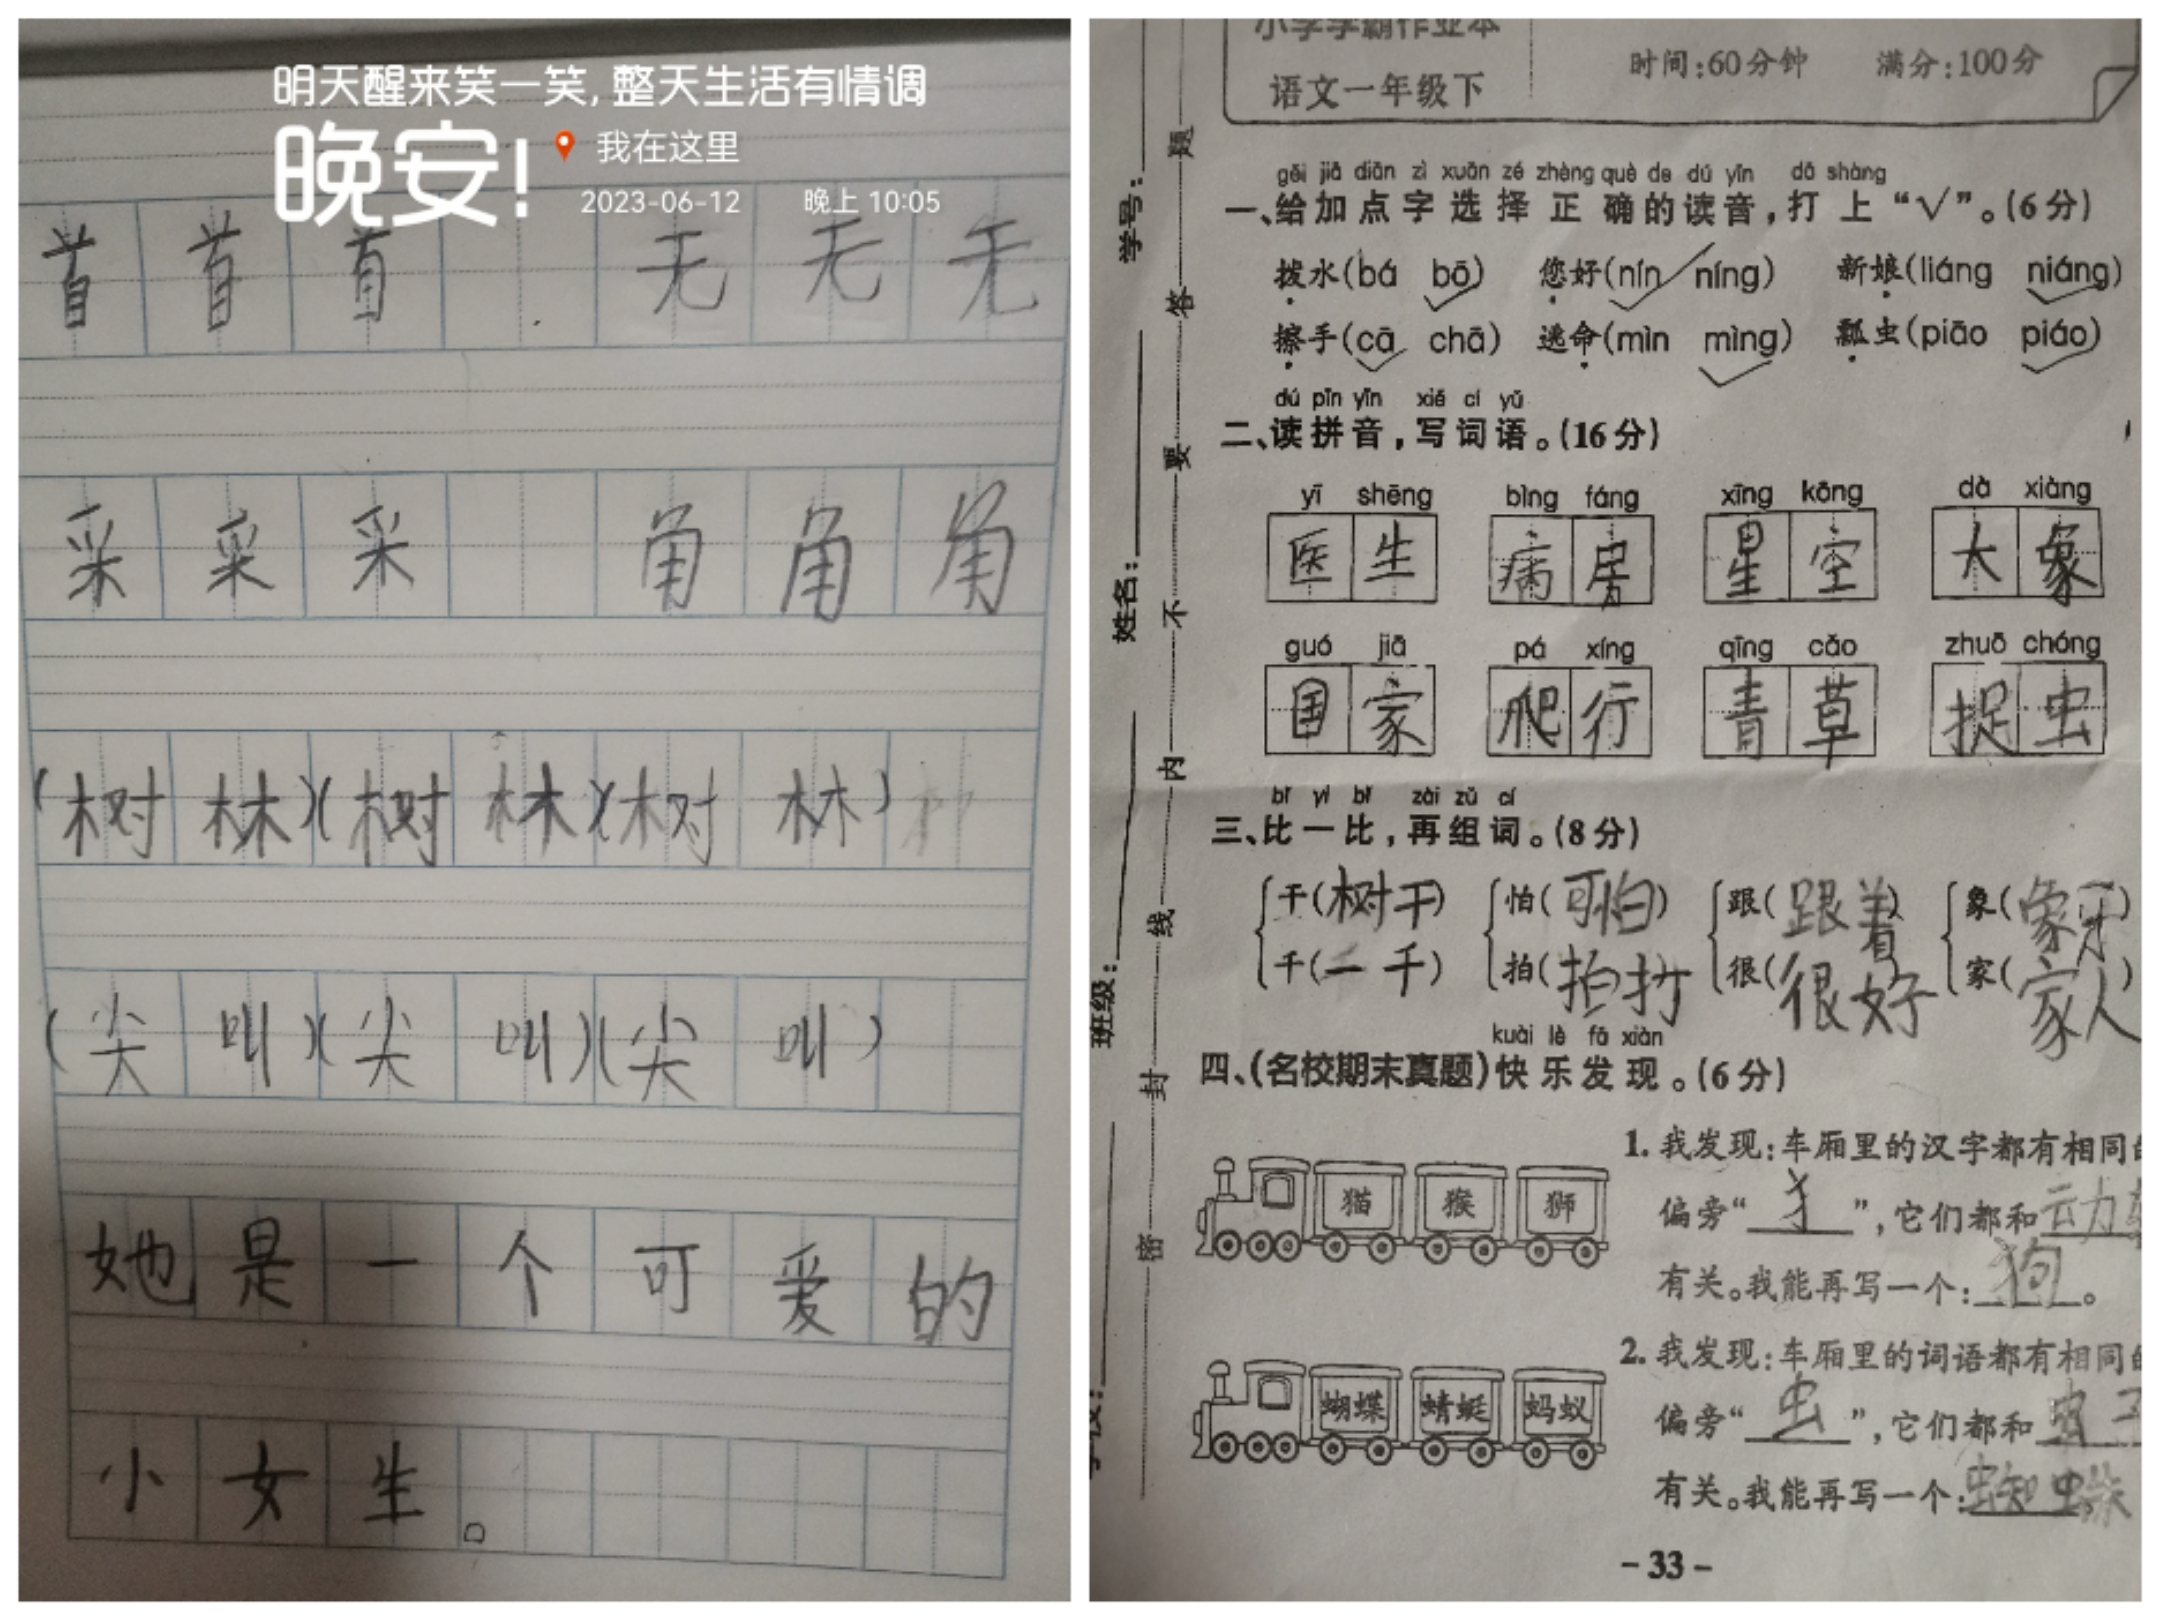 明天醒来笑一笑,整天生活有情调
晚安!
我在这里
2023-06-12 晚上 10:05
首 首 首 无 无 无
采 采 采 角 角 角
(树 林)(树 林)(树 林)
(尖 叫)(尖 叫)(尖 叫)
她 是 一 个 可 爱 的
小 女 生 。
小学学霸作业本
语文一年级下
时间:60分钟 满分:100分
学号:
姓名:
班级:
密 封 线 内 不 要 答 题
gěi jiā diǎn zì xuǎn zé zhèng què de dú yīn dǎ shàng
一、给加点字选择正确的读音,打上“√”。(6分)
拨水(bá bō) 您好(nín níng) 新娘(liáng niáng)
擦手(cā chā) 逃命(mìn mìng) 瓢虫(piāo piáo)
dú pīn yīn xiě cí yǔ
二、读拼音,写词语。(16分)
yī shēng bìng fáng xīng kōng dà xiàng
医生 病房 星空 大象
guó jiā pá xíng qīng cǎo zhuō chóng
国家 爬行 青草 捉虫
bǐ yì bǐ zài zǔ cí
三、比一比,再组词。(8分)
干(树干) 怕(可怕) 跟(跟着) 象(象牙)
千(一千) 拍(拍打) 很(很好) 家(家人)
kuài lè fā xiàn
四、(名校期末真题)快乐发现。(6分)
猫 猴 狮
1.我发现:车厢里的汉字都有相同
偏旁“犭”,它们都和动
有关。我能再写一个:狗。
蝴蝶 蜻蜓 蚂蚁
2.我发现:车厢里的词语都有相同
偏旁“虫”,它们都和虫子
有关。我能再写一个:蜘蛛
-33-